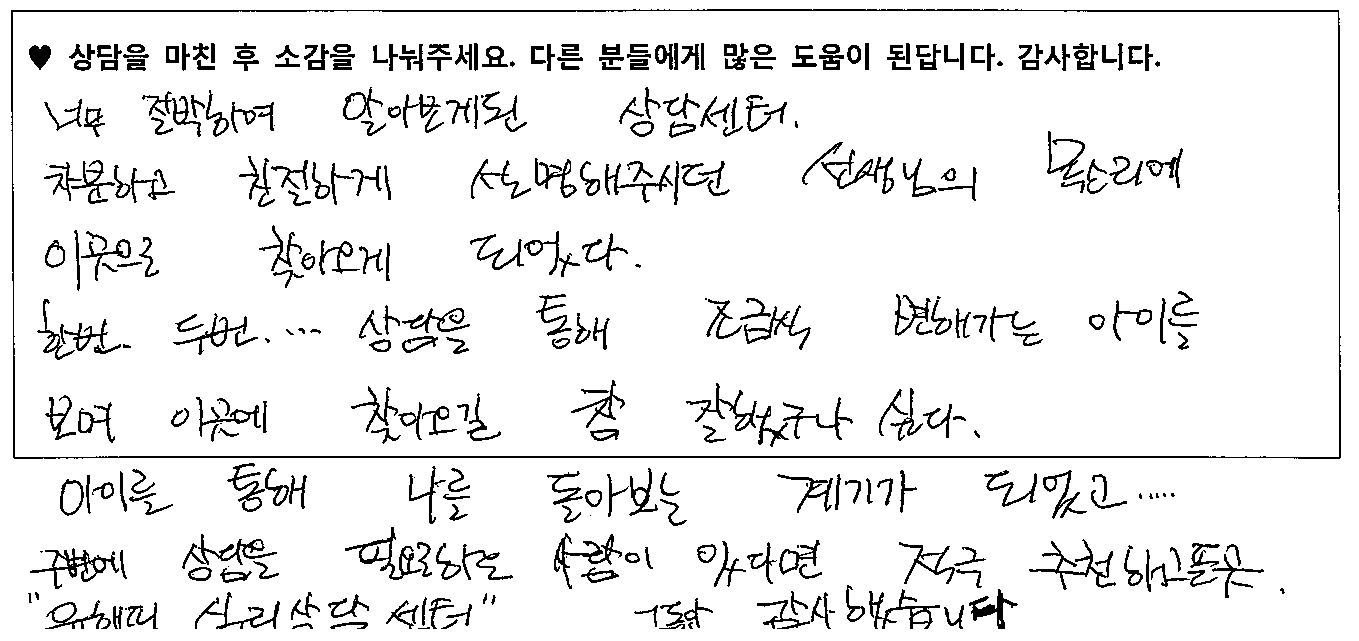 ♥ 상담을 마친 후 소감을 나눠주세요. 다른 분들에게 많은 도움이 된답니다. 감사합니다.
너무 절박하여 알아보게된 상담센터.
차분하고 친절하게 설명해주시던 선생님의 목소리에
이곳으로 찾아오게 되었다.
한번. 두번.... 상담을 통해 조금씩 변해가는 아이를
보며 이곳에 찾아오길 참 잘했구나 싶다.
아이를 통해 나를 돌아보는 계기가 되었고.....
주변에 상담을 필요로하는 사람이 있다면 적극 추천하고픈곳.
심리상담센터" 감사했습니다